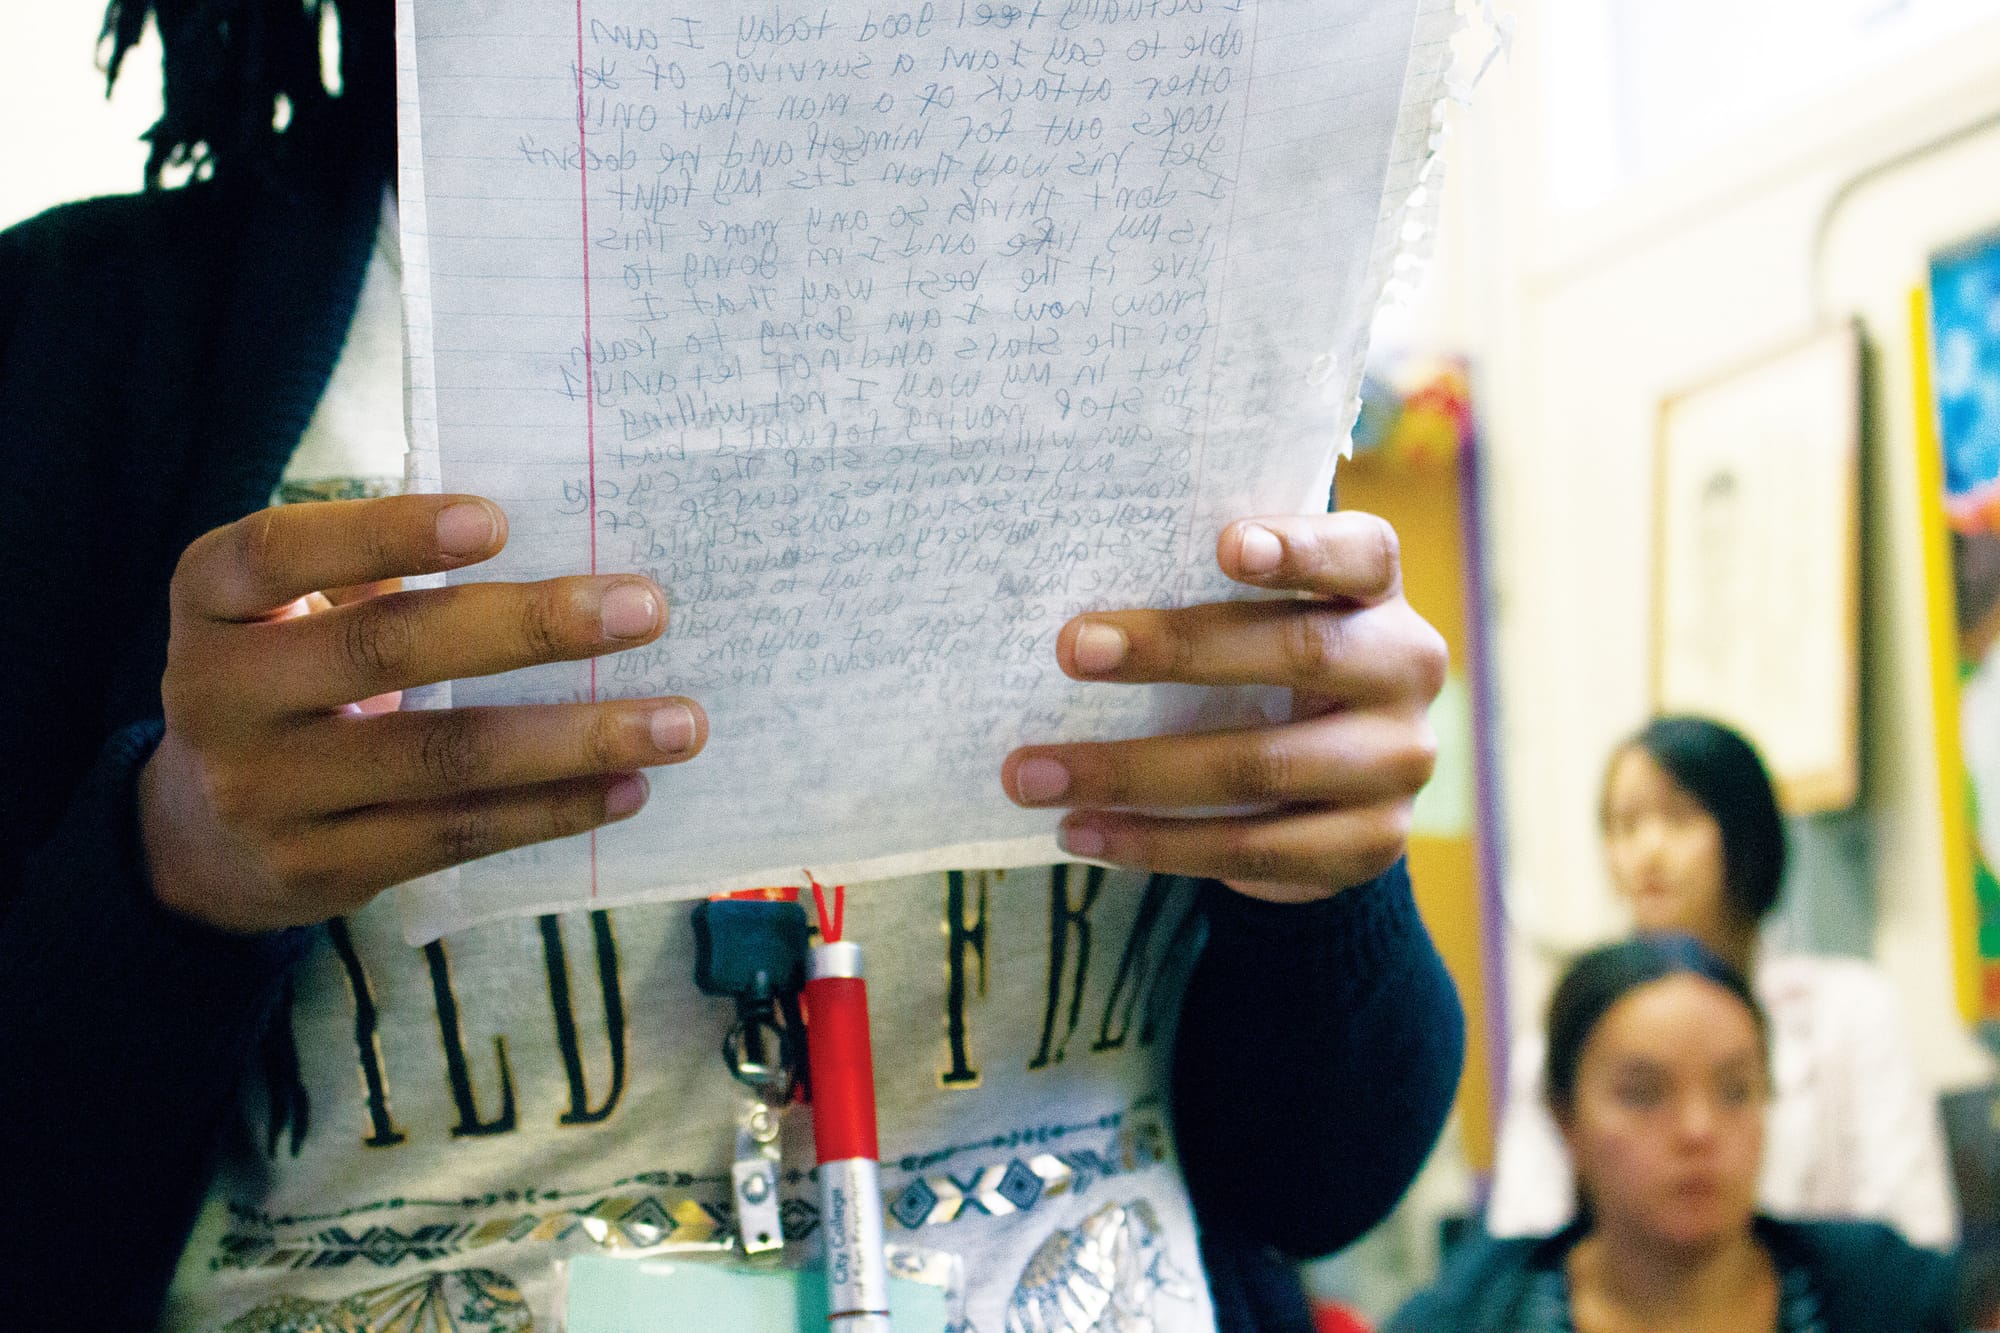 I actually feel good today I am
able to say I am a survivor of yet
other attack of a man that only
looks out for himself and he doesn't
get his way then Its my
I don't think so any more This
is my life and I'm going to
live it the best way that I
know how I am going to reach
for the stars and not let any1
get in my way I not willing
to stop moving forward but
I am willing to stop the cycle
of my families curse of
poverty, sexual abuse, child
neglect everyones
I stand tall to day to
I will not walk
of fear of anyone any
by all means necessary
ILD FR
City College